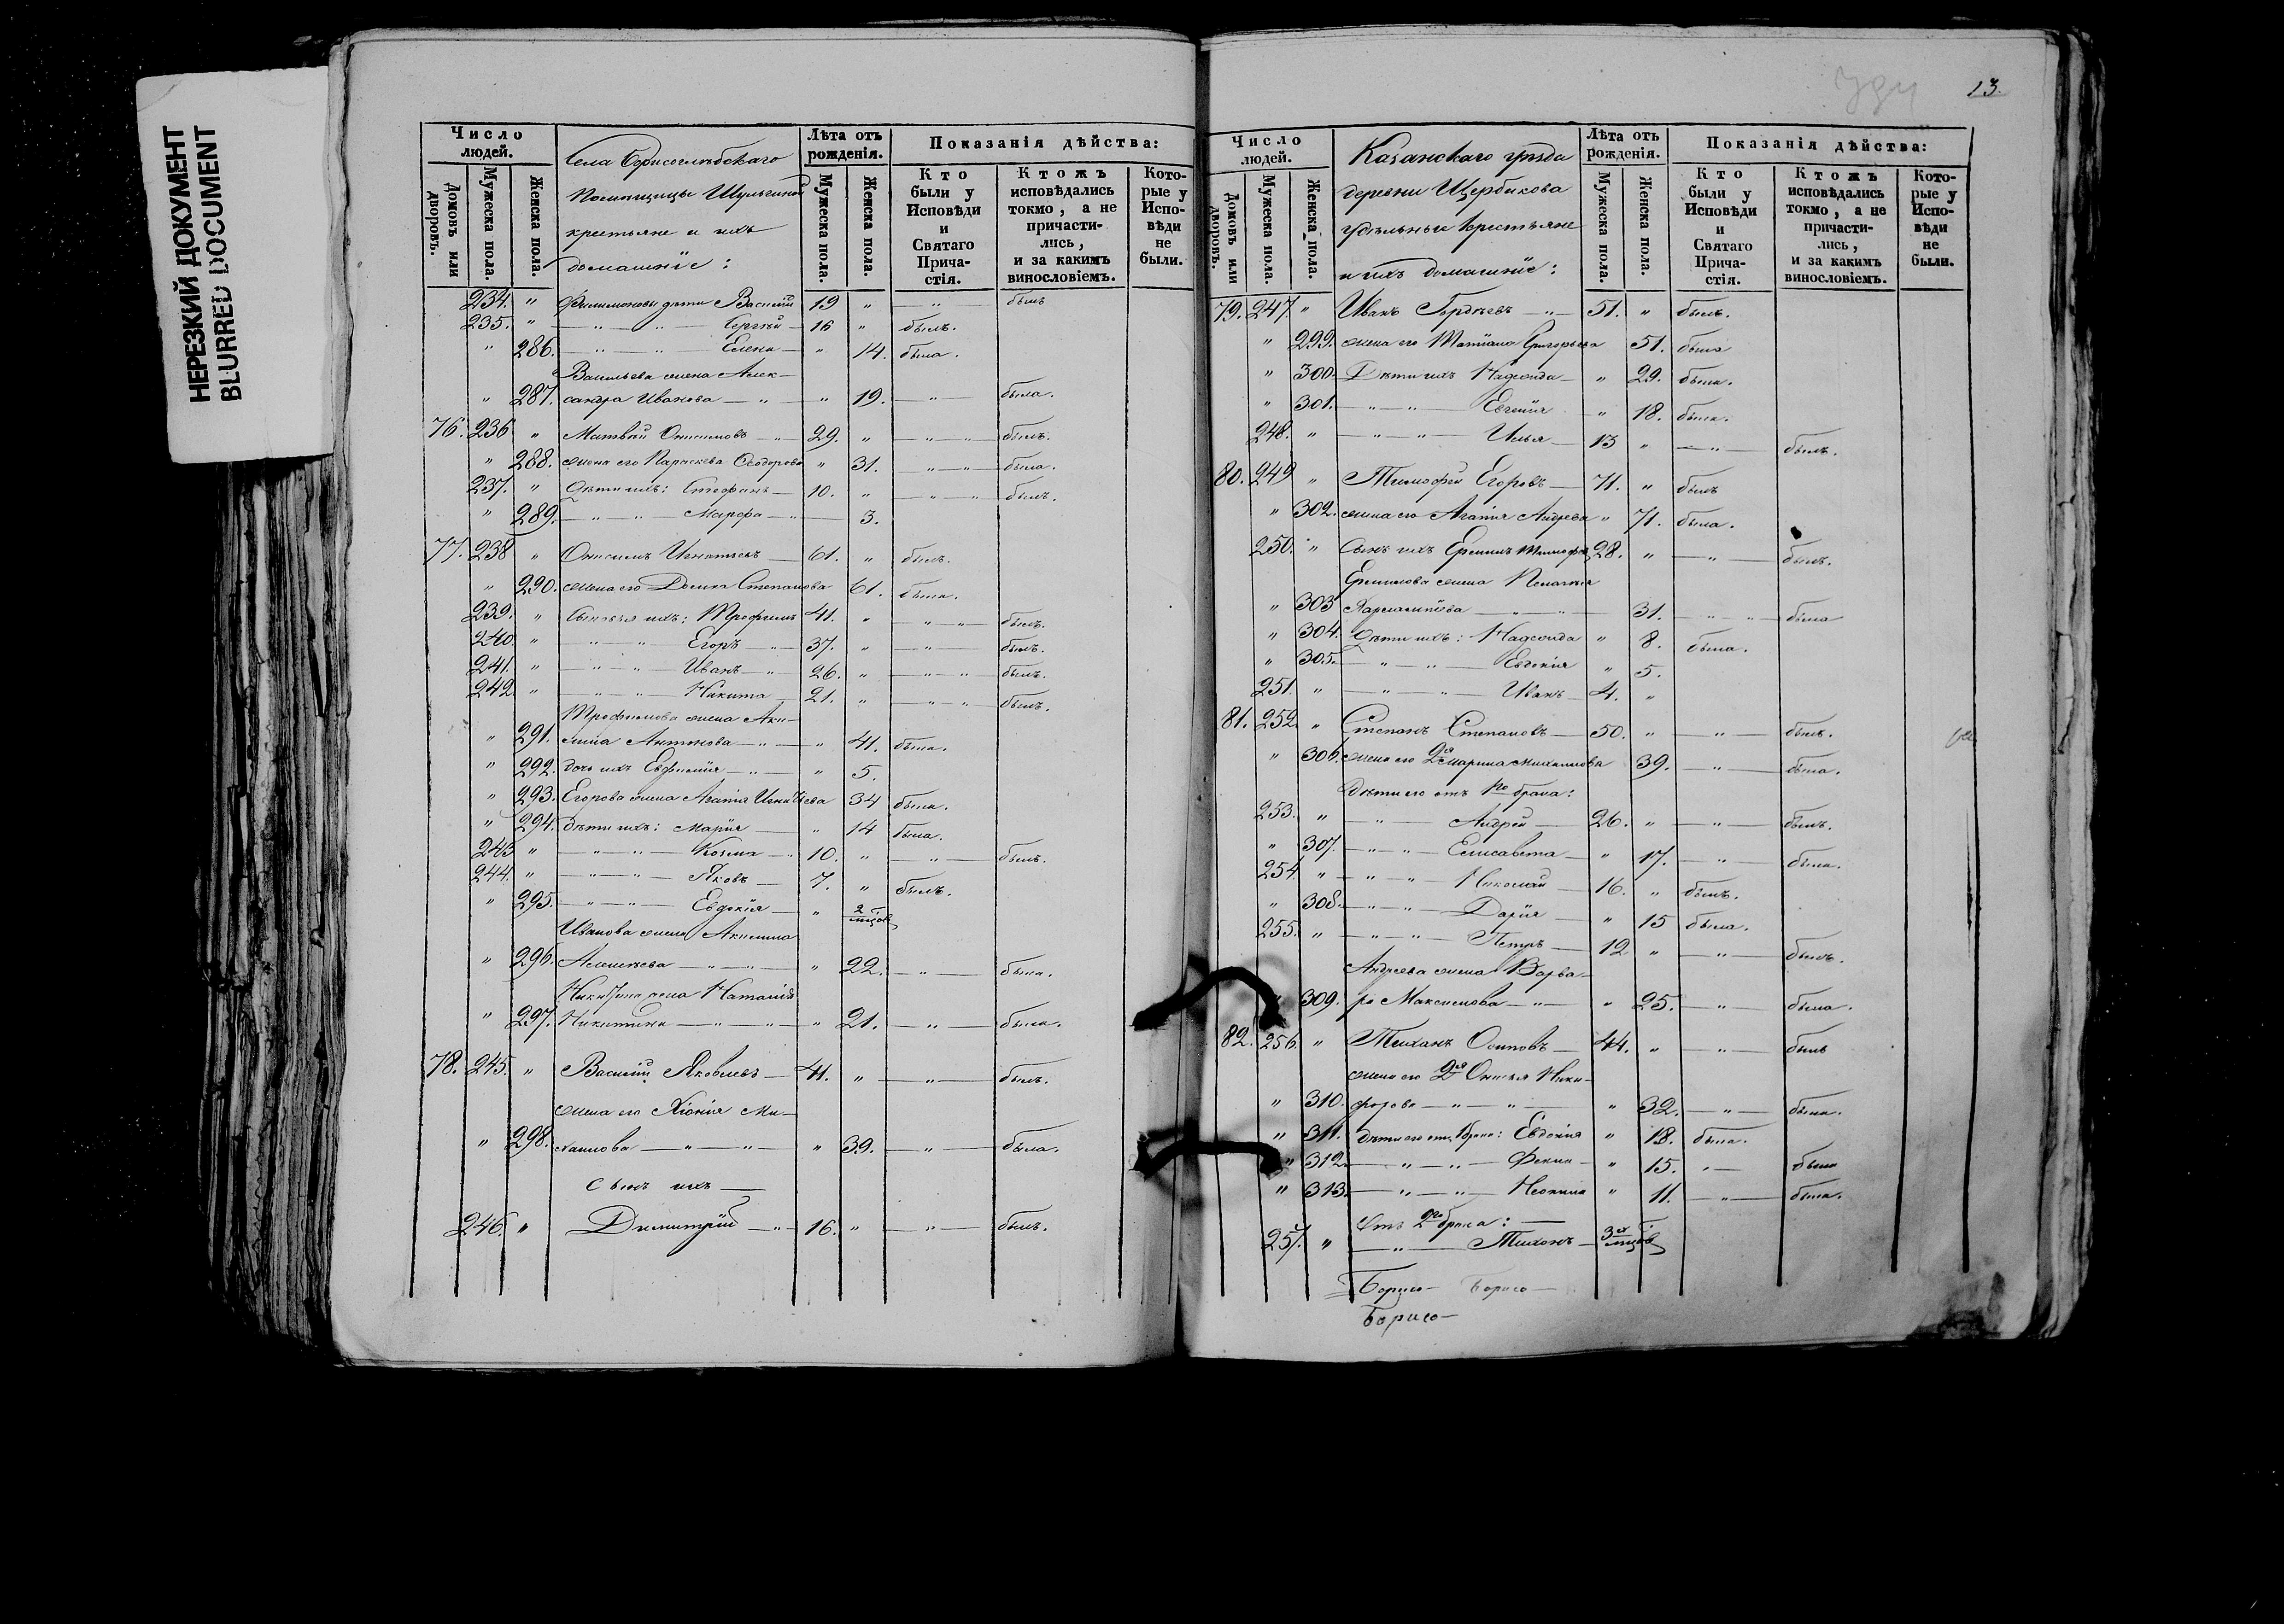 НЕРЕЗКИЙ ДОКУМЕНТ
BLURRED DOCUMENT
Число людей.
Домовъ или дворовъ.
Мужеска пола.
Женска пола.
Села Борисоглѣбскаго
Помѣщицы Шульгиной
крестьяне и ихъ
домашніе:
Лѣта отъ рожденія.
Мужеска пола.
Женска пола.
Показанія дѣйства:
Кто были у Исповѣди и Святаго Причастія.
Ктожъ исповѣдались токмо, а не причастились, и за какимъ винословіемъ.
Которые у Исповѣди не были.
234. " Филимоновы дѣти Василій 19 " — " — былъ
235. " — " — " — Сергѣй — 16 " былъ.
" 286. — " — " — Елена — " 14. была.
Васильева жена Алек-
" 287. сандра Иванова — " — " 19. — " — была.
76. 236 " Матвѣй Онисимовъ — " 29. " — " — " — былъ.
" 288. жена его Параскева Ѳеодорова " 31. — " — " — была.
237. " Дѣти ихъ: Стефанъ — 10. " — " — " былъ.
" 289. — " — " Марфа — " — 3.
77. 238 " Онисимъ Игнатьевъ — 61. " былъ.
" 290. жена его Домна Степанова 61. была.
239. " Сыновья ихъ: Трофимъ 41. " — " — " былъ.
240. " — " — " Егоръ — " 37. " — " — былъ.
241. " — " — " — Иванъ — " 26. " — " — " былъ.
242. " — " — " — Никита — 21. " — " — " былъ.
Трофимова жена Аки-
" 291. лина Антонова — " — " 41. была.
" 292. дочь ихъ Евфимія — " — " 5.
" 293. Егорова жена Агапія 34 была.
" 294. дѣти ихъ: Марія — " 14 была.
243 " — " — " — Козма — " 10. " — " — былъ.
244. " — " — " — Яковъ — 7. " былъ.
" 295. — " — " — Евдокія — " 2 мѣсяц
Иванова жена Акилина
" 296. Алексѣева — " — " — " 22. — " — была.
Никитина жена Наталія
" 297. Никитина — " — " — " 21. — " — была.
78. 245. " Василій Яковлевъ — 41. " — " — былъ.
жена его Хіонія Ми-
" 298. хаилова — " — " — " 39. — " — была.
сынъ ихъ —
246. " Димитрій — " — 16. " — " — былъ.
13.
Число людей.
Домовъ или дворовъ.
Мужеска пола.
Женска пола.
Казанскаго уѣзда
деревни Щербакова
удѣльные крестьяне
и ихъ домашніе:
Лѣта отъ рожденія.
Мужеска пола.
Женска пола.
Показанія дѣйства:
Кто были у Исповѣди и Святаго Причастія.
Ктожъ исповѣдались токмо, а не причастились, и за какимъ винословіемъ.
Которые у Исповѣди не были.
79. 247. " Иванъ Гордѣевъ — " — 51. " былъ.
" 299. жена его Татіана Григорьева 51. была
" 300. Дѣти ихъ Надежда — " 29. была.
" 301. — " — " — Евгенія " 18. была.
248. " — " — " — Илья — 13 " — " — былъ.
80. 249 " Тимофей Егоровъ — 71. " былъ
" 302. жена его Агапія Андреева " 71. была.
250. " Сынъ ихъ Ермилъ Тимоф 28. " — " — былъ.
Ермилова жена Пелагія
" 303 Харлампіева — " — " — 31. — " — " была
" 304. Дѣти ихъ: Надежда " 8. была.
" 305. — " — " — Евдокія " 5.
251. " — " — " — Иванъ — 4. "
81. 252. " Степанъ Степановъ — 50. " — " — былъ.
" 306. жена его 2я Марина Михаилова 39. — " — была.
Дѣти его отъ 1го брака:
253. " — " — Андрей — 26. " — " — былъ.
" 307. — " — " — Елисавета — " 17. — " — была.
254. " — " — " — Николай — 16. " былъ.
" 308. — " — " — Дарія — " 15 была.
255. " — " — " — Петръ — 12 " — " — былъ.
Андреева жена Варва-
" 309. ра Максимова — " — " 25. — " — была.
82. 256. " Тихонъ Осиповъ — 44. " — " — былъ
жена его 2я Онисья Ники-
" 310. форова — " — " — " 32. — " — была.
" 311. дѣти его отъ 1 брака: Евдокія " 18. была.
" 312. — " — " — Фекла — " 15. " — была
" 313. — " — " — Неонила " 11. — " — была.
Отъ 2го брака: —
257. " — " — Тихонъ — 3х мѣсяц
Борисо- Борисо-
Борисо-